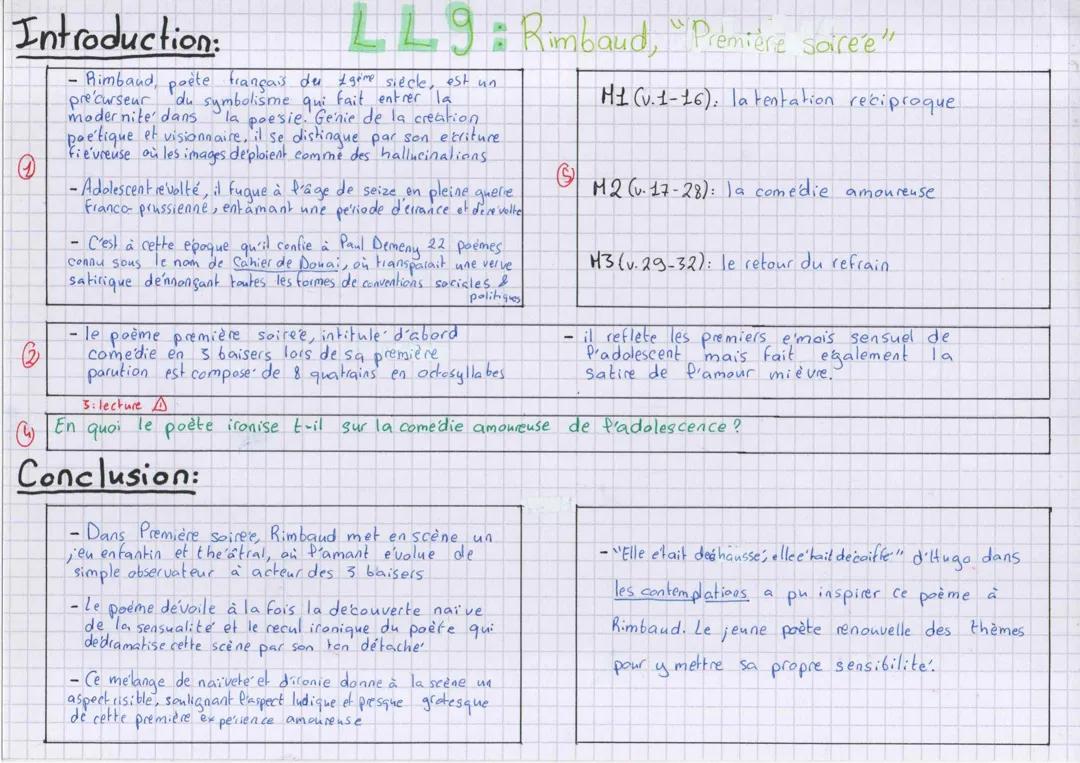 Introduction:
LL9: Rimbaud, "Première soirée"
①
- Rimbaud, poète français du 19ème siècle, est un
précurseur du symbolisme qui fait entrer la
modernité dans la poesie. Génie de la création
poétique et visionnaire, il se distingue par son ecriture
fiévreuse où les images déploient comme des hallucinations
- Adolescent révolté, il fugue à l'âge de seize en pleine guerre
franco-prussienne, entamant une période d'errance et de révolte
- C'est à cette époque qu'il confie à Paul Demeny 22 poèmes
connu sous le nom de Cahier de Douai, où transparait une verve
satirique dénonçant toutes les formes de conventions sociales &
politiques
⑤
M1 (v.1-16): la tentation réciproque
M2 (v.17-28): la comédie amoureuse
M3 (v.29-32): le retour du refrain
②
- le poème première soirée, intitulé d'abord
comédie en 3 baisers lors de sa première
parution est composé de 8 quatrains en octosyllabes
- il reflète les premiers émois sensuel de
l'adolescent mais fait également la
satire de l'amour mièvre.
3: lecture ⚠
④
En quoi le poète ironise t-il sur la comédie amoureuse de l'adolescence ?
Conclusion:
- Dans Première soirée, Rimbaud met en scène un
jeu enfantin et théâtral, où l'amant évolue de
simple observateur à acteur des 3 baisers
- Le poème dévoile à la fois la découverte naïve
de la sensualité et le recul ironique du poète qui
dédramatise cette scène par son ton détaché
- Ce mélange de naïveté et d'ironie donne à la scène un
aspect risible, soulignant l'aspect ludique et presque grotesque
de cette première expérience amoureuse
- "Elle était déchaussé, elle était décoiffé" d'Hugo dans
les contemplations a pu inspirer ce poème à
Rimbaud. Le jeune poète renouvelle des thèmes
pour y mettre sa propre sensibilité.